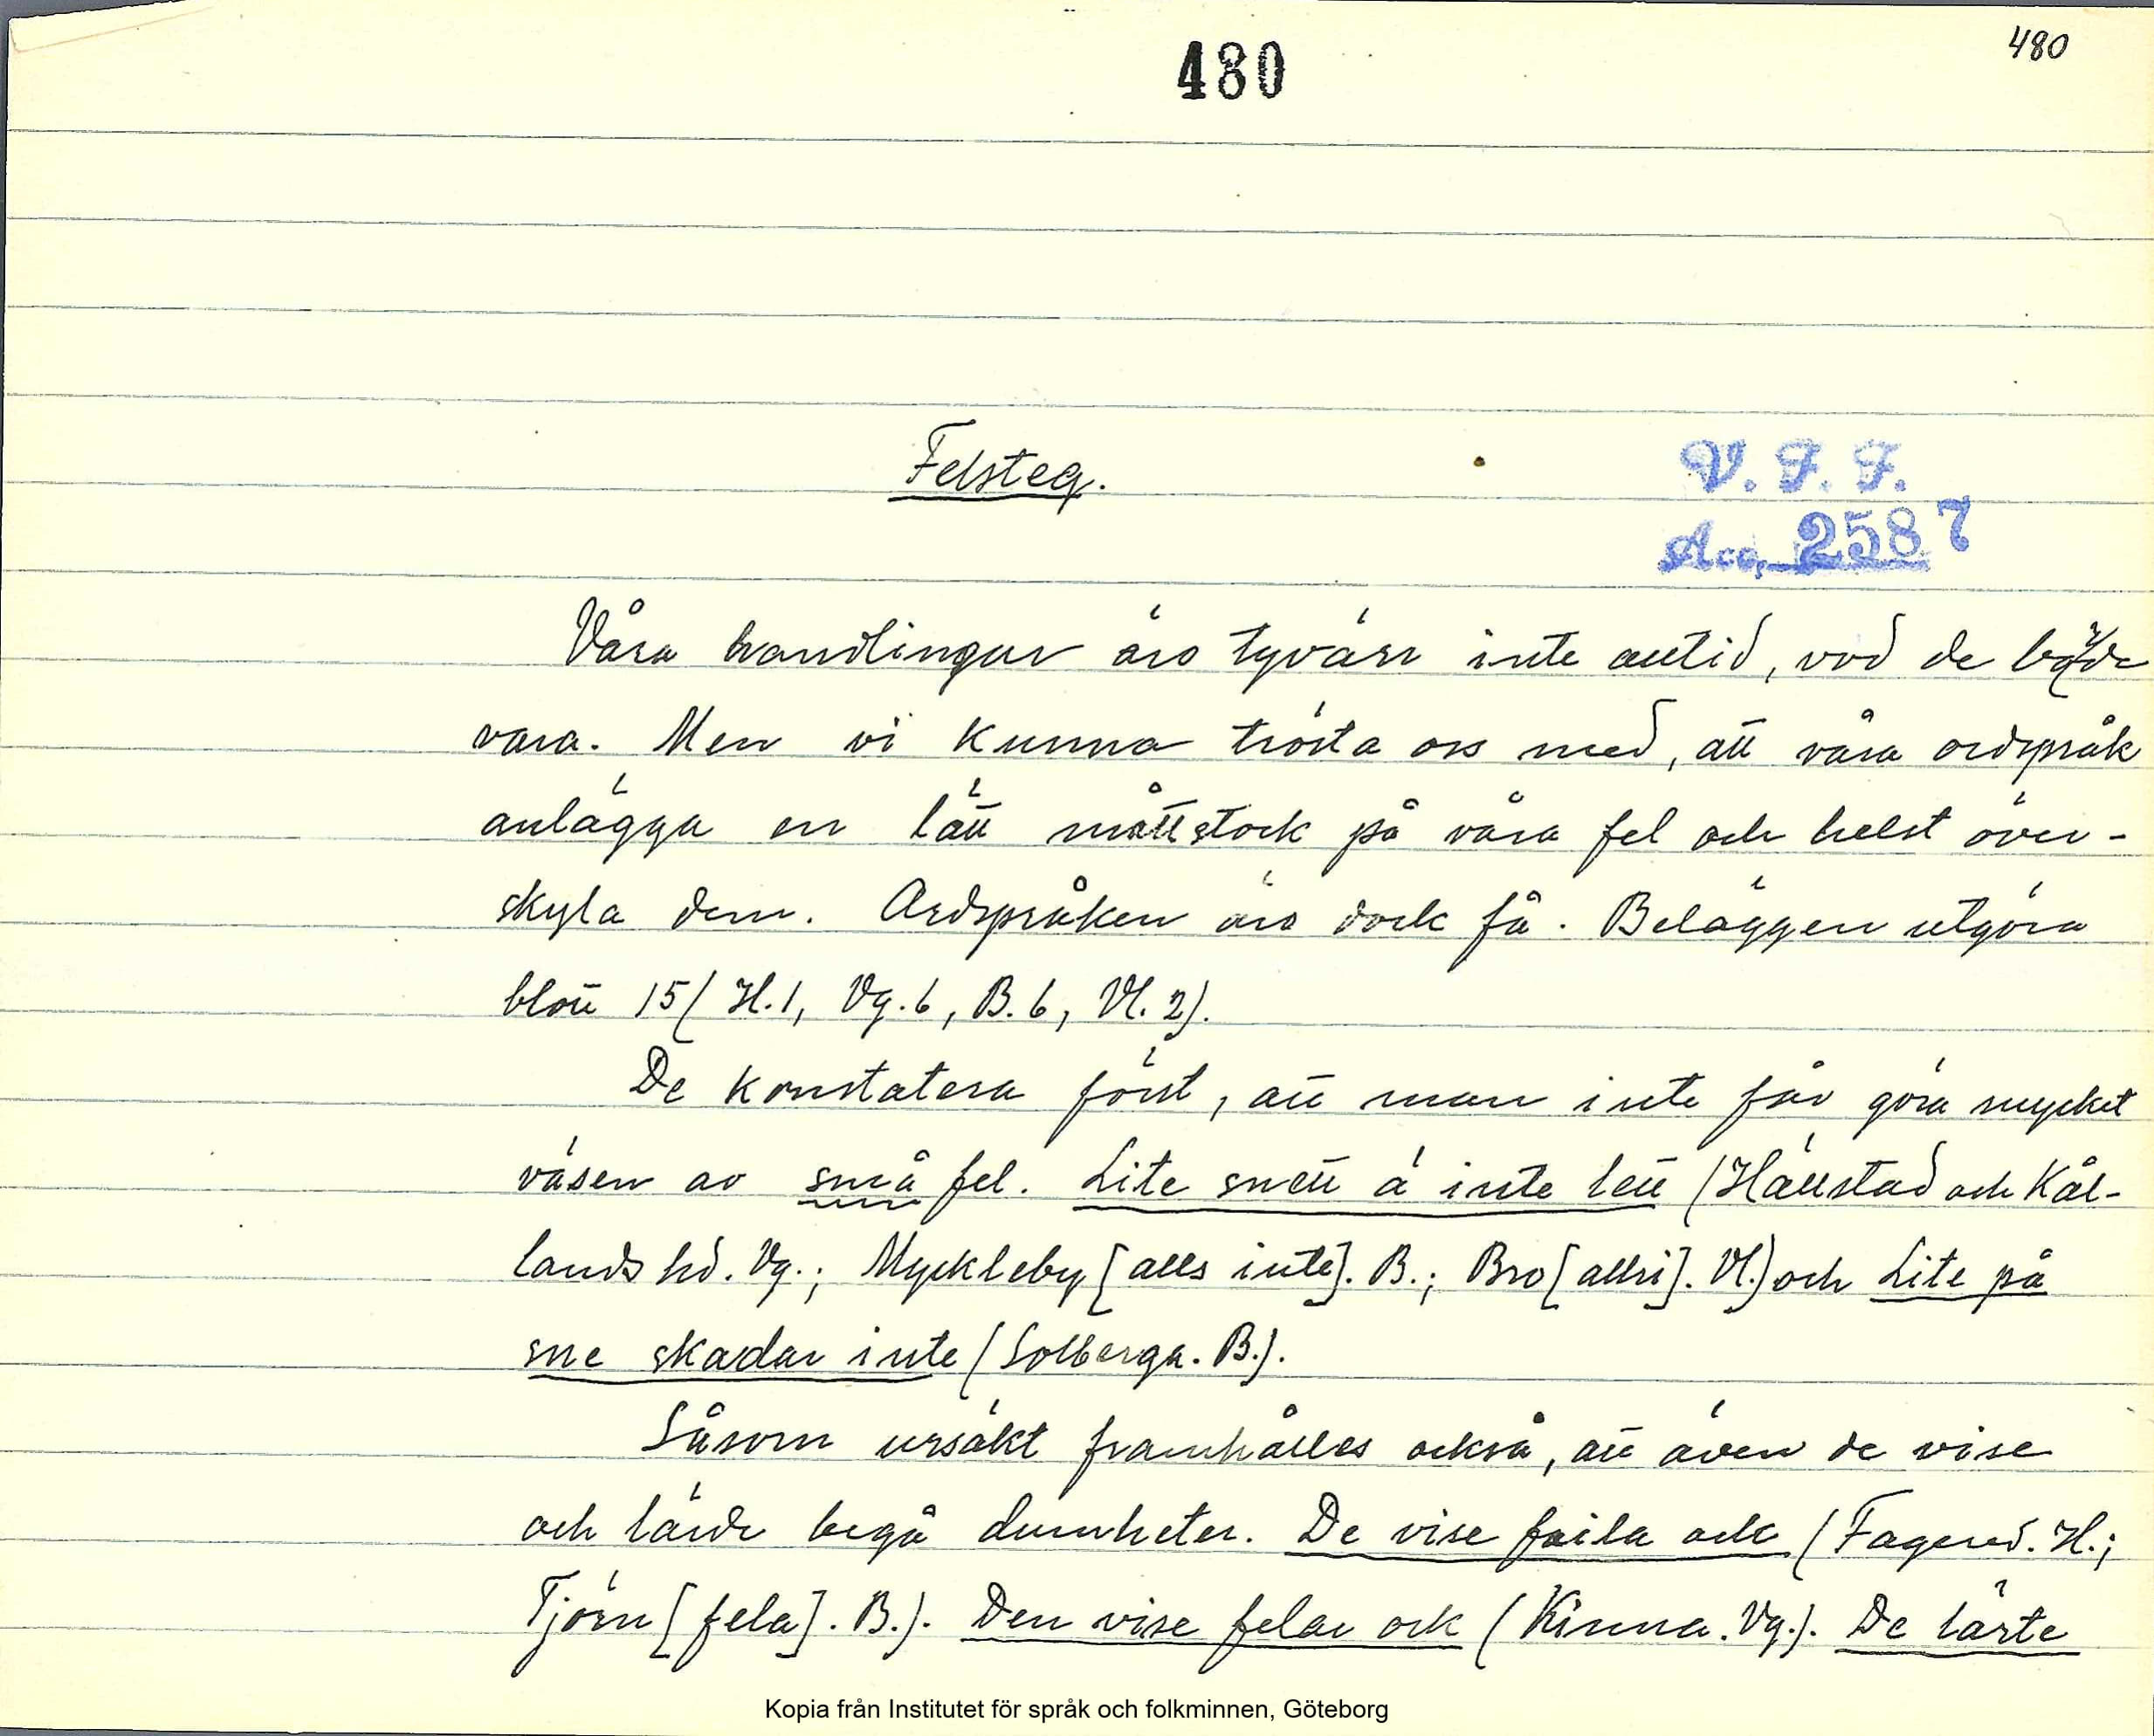 480
480
Felsteg.
V. F. F.
Acc. 2587
Våra handlingar äro tyvärr inte alltid, vad de böra
vara. Men vi kunna trösta oss med, att våra ordspråk
anlägga en lätt måttstock på våra fel och helst över-
skyla dem. Ordspråken äro dock få. Beläggen utgöra
blott 15 (H.1, Vg.6, B.6, Vl.2).
De konstatera först, att man inte får göra mycket
väsen av små fel. Lite snett ä inte lett (Hällstad och Kål-
lands hd. Vg.; Myckleby [alls inte]. B.; Bro [allri]. Vl.) och Lite på
sne skadar inte (Solberga. B.).
Såsom ursäkt framhålles också, att även de vise
och lärde begå dumheter. De vise faila ock (Fagered. H.;
Tjörn [fela]. B.). Den vise felar ock (Kinna. Vg.). De lärte
Kopia från Institutet för språk och folkminnen, Göteborg